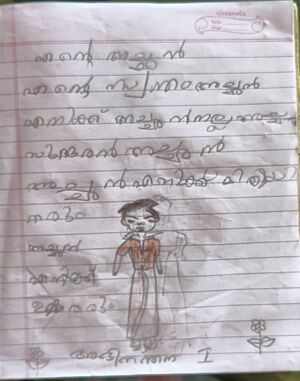 classmate
Date
Page
എന്റെ അച്ഛൻ
എന്റെ സ്വന്തം അച്ഛൻ
എനിക്ക് അച്ഛൻ നല്ല അച്ഛൻ
സുന്ദരൻ അച്ഛൻ
അച്ഛൻ എനിക്ക് മിഠായി
തരും
അച്ഛൻ
എനിക്ക്
ഉമ്മ തരും
I